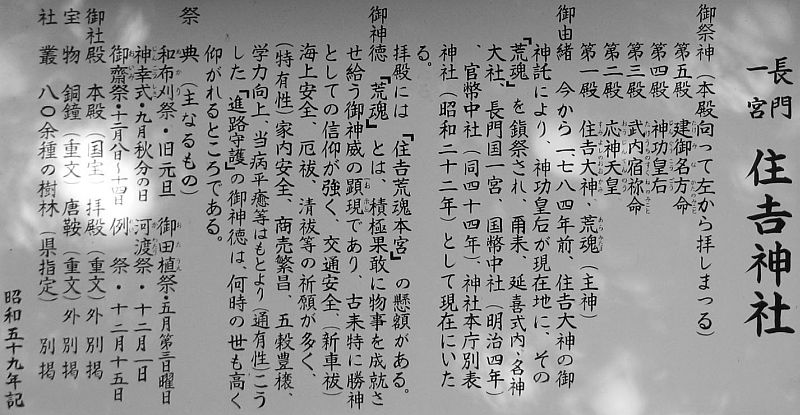 長門一宮 住吉神社
御祭神（本殿向って左から拝しまつる）
第五殿 建御名方命
第四殿 神功皇后
第三殿 武内宿祢命
第二殿 応神天皇
第一殿 住吉大神、荒魂（主神）
御由緒 今から一七八四年前、住吉大神の御
神託により、神功皇后が現在地に、その
『荒魂』を鎮祭され、爾来、延喜式内・名神
大社、長門国一宮、国幣中社（明治四年）
、官幣中社（同四十四年）、神社本庁別表
神社（昭和二十二年）として現在にいた
る。
拝殿には『住吉荒魂本宮』の懸額がある。
御神徳『荒魂』とは、積極果敢に物事を成就さ
せ給う御神威の顕現であり、古来特に勝神
としての信仰が強く、交通安全、（新車祓）
海上安全、厄祓、清祓等の祈願が多く、
（特有性）家内安全、商売繁昌、五穀豊穣、
学力向上、当病平癒等はもとより（通有性）こう
した『進路守護』の御神徳は、何時の世も高く
仰がれるところである。
祭典（主なるもの）
和布刈祭・旧元旦 御田植祭・五月第三日曜日
神幸式・九月秋分の日 河渡祭・十二月一日
御齋祭・十二月八日〜十四日 例祭・十二月十五日
御社殿 本殿（国宝）拝殿（重文）外 別掲
宝物 銅鐘（重文）唐鞍（重文）外 別掲
社叢 八〇余種の樹林（県指定） 別掲
昭和五十九年記